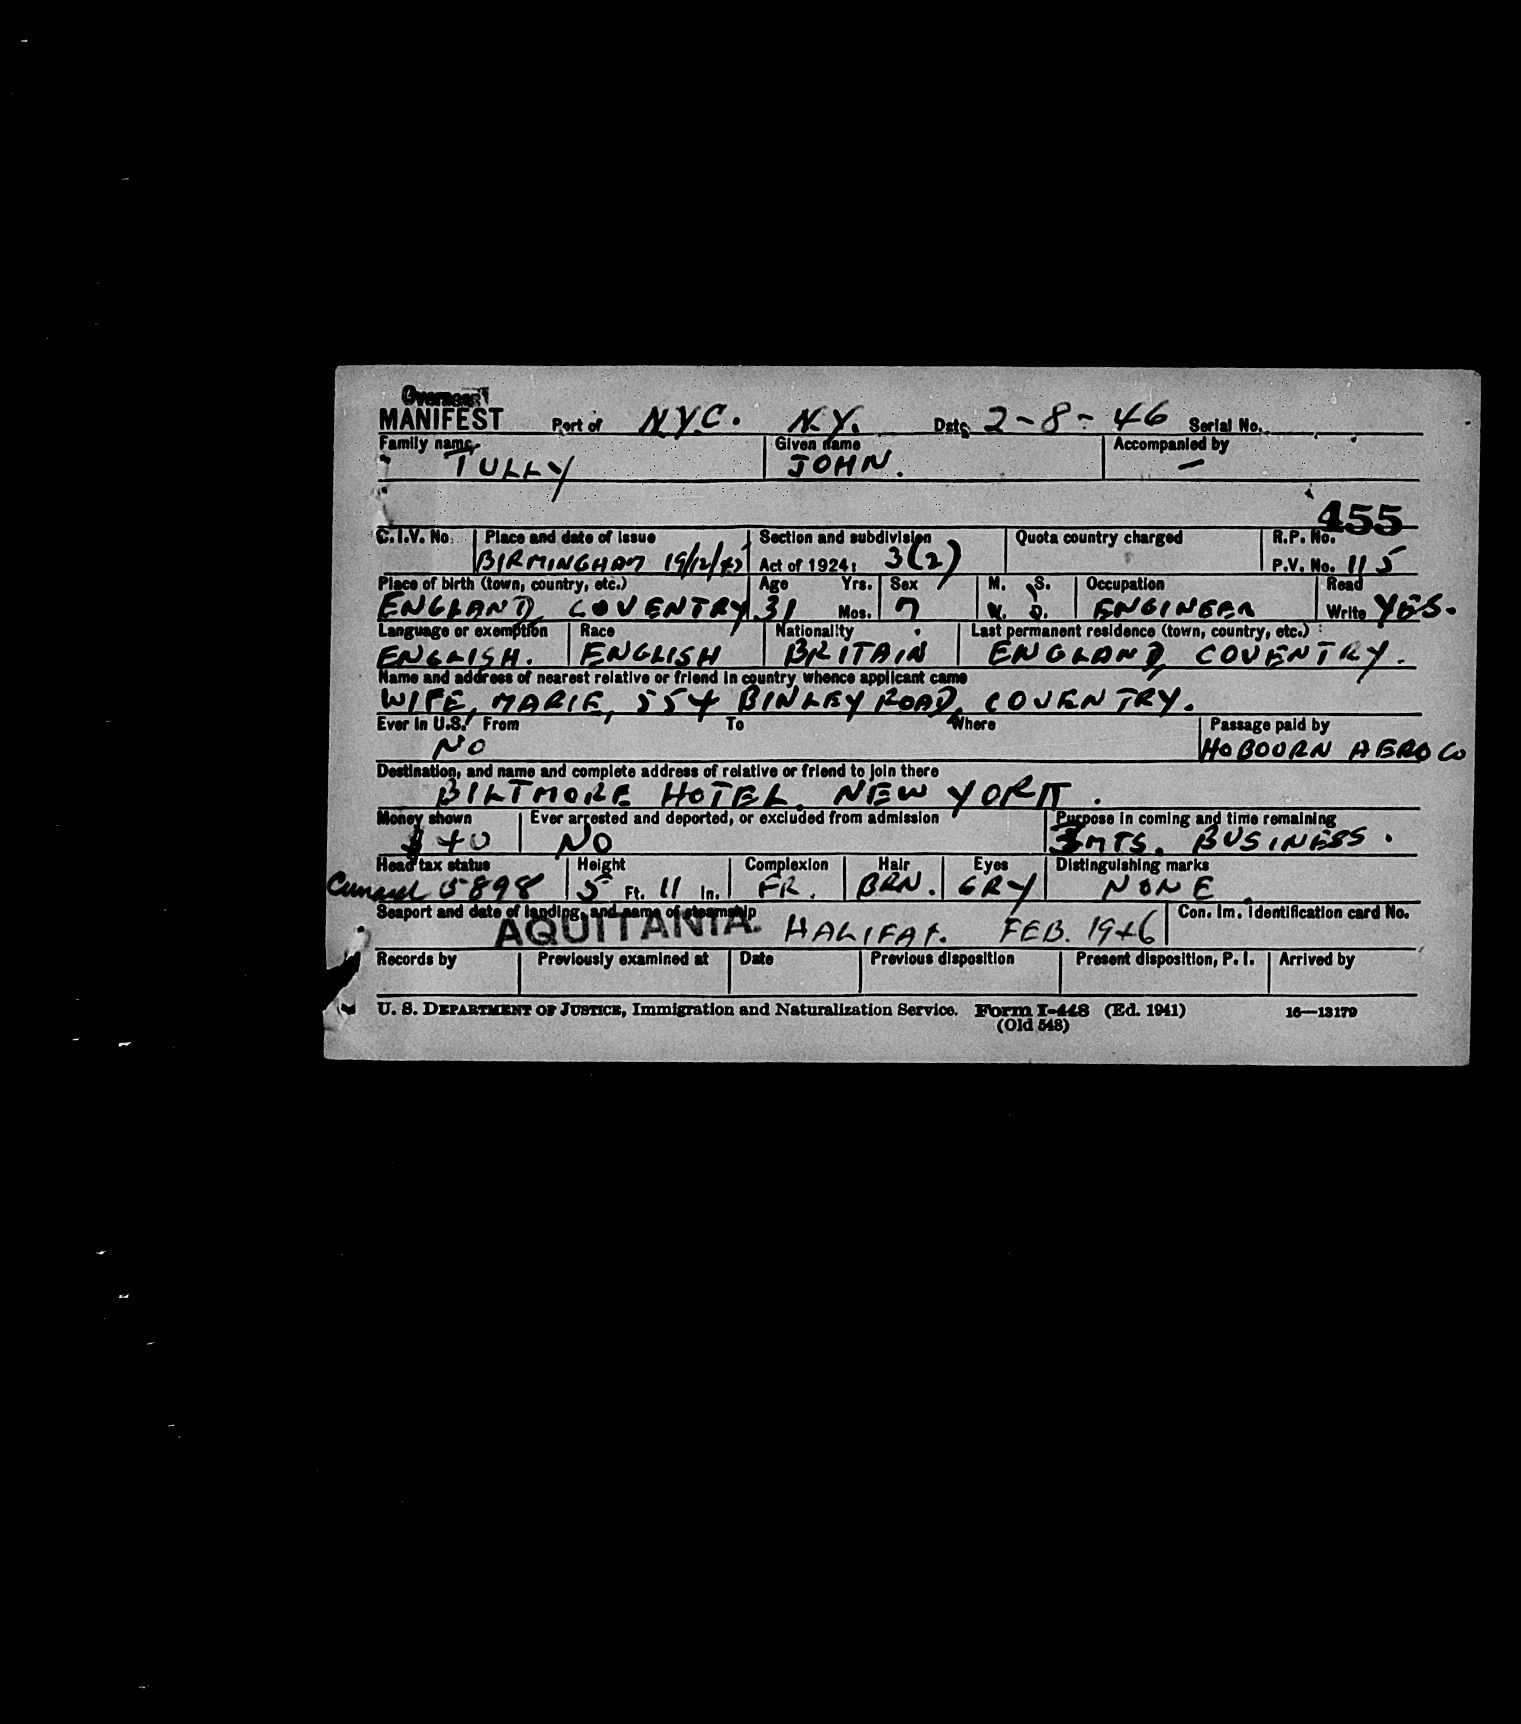 MANIFEST Port of N.Y.C. N.Y. Date 2-8-46 Serial No.
Family name Given name Accompanied by
TULLY JOHN. —
455
C.I.V. No. Place and date of issue Section and subdivision Quota country charged R.P. No.
BIRMINGHAM 19/12/45 Act of 1924: 3(2) P.V. No. 115
Place of birth (town, country, etc.) Age Yrs. Sex M. S. Occupation Read
ENGLAND, COVENTRY 31 Mos. W. D. ENGINEER Write YES.
Language or exemption Race Nationality Last permanent residence (town, country, etc.)
ENGLISH. ENGLISH BRITAIN ENGLAND, COVENTRY.
Name and address of nearest relative or friend in country whence applicant came
WIFE, MARIE, 554 BINLEY ROAD, COVENTRY.
Ever in U.S.? From To Where Passage paid by
NO HOBOURN AERO CO
Destination, and name and complete address of relative or friend to join there
BILTMORE HOTEL, NEW YORK.
Money shown Ever arrested and deported, or excluded from admission Purpose in coming and time remaining
$40 NO 3 MTS. BUSINESS.
Head tax status Height Complexion Hair Eyes Distinguishing marks
Cunard 5898 5 Ft. 11 In. FR. BRN. GRY NONE
Seaport and date of landing, and name of steamship Con. Im. Identification card No.
AQUITANIA. HALIFAX. FEB. 1946
Records by Previously examined at Date Previous disposition Present disposition, P.I. Arrived by
U. S. DEPARTMENT OF JUSTICE, Immigration and Naturalization Service. Form I-448 (Ed. 1941) 16—13179
(Old 548)